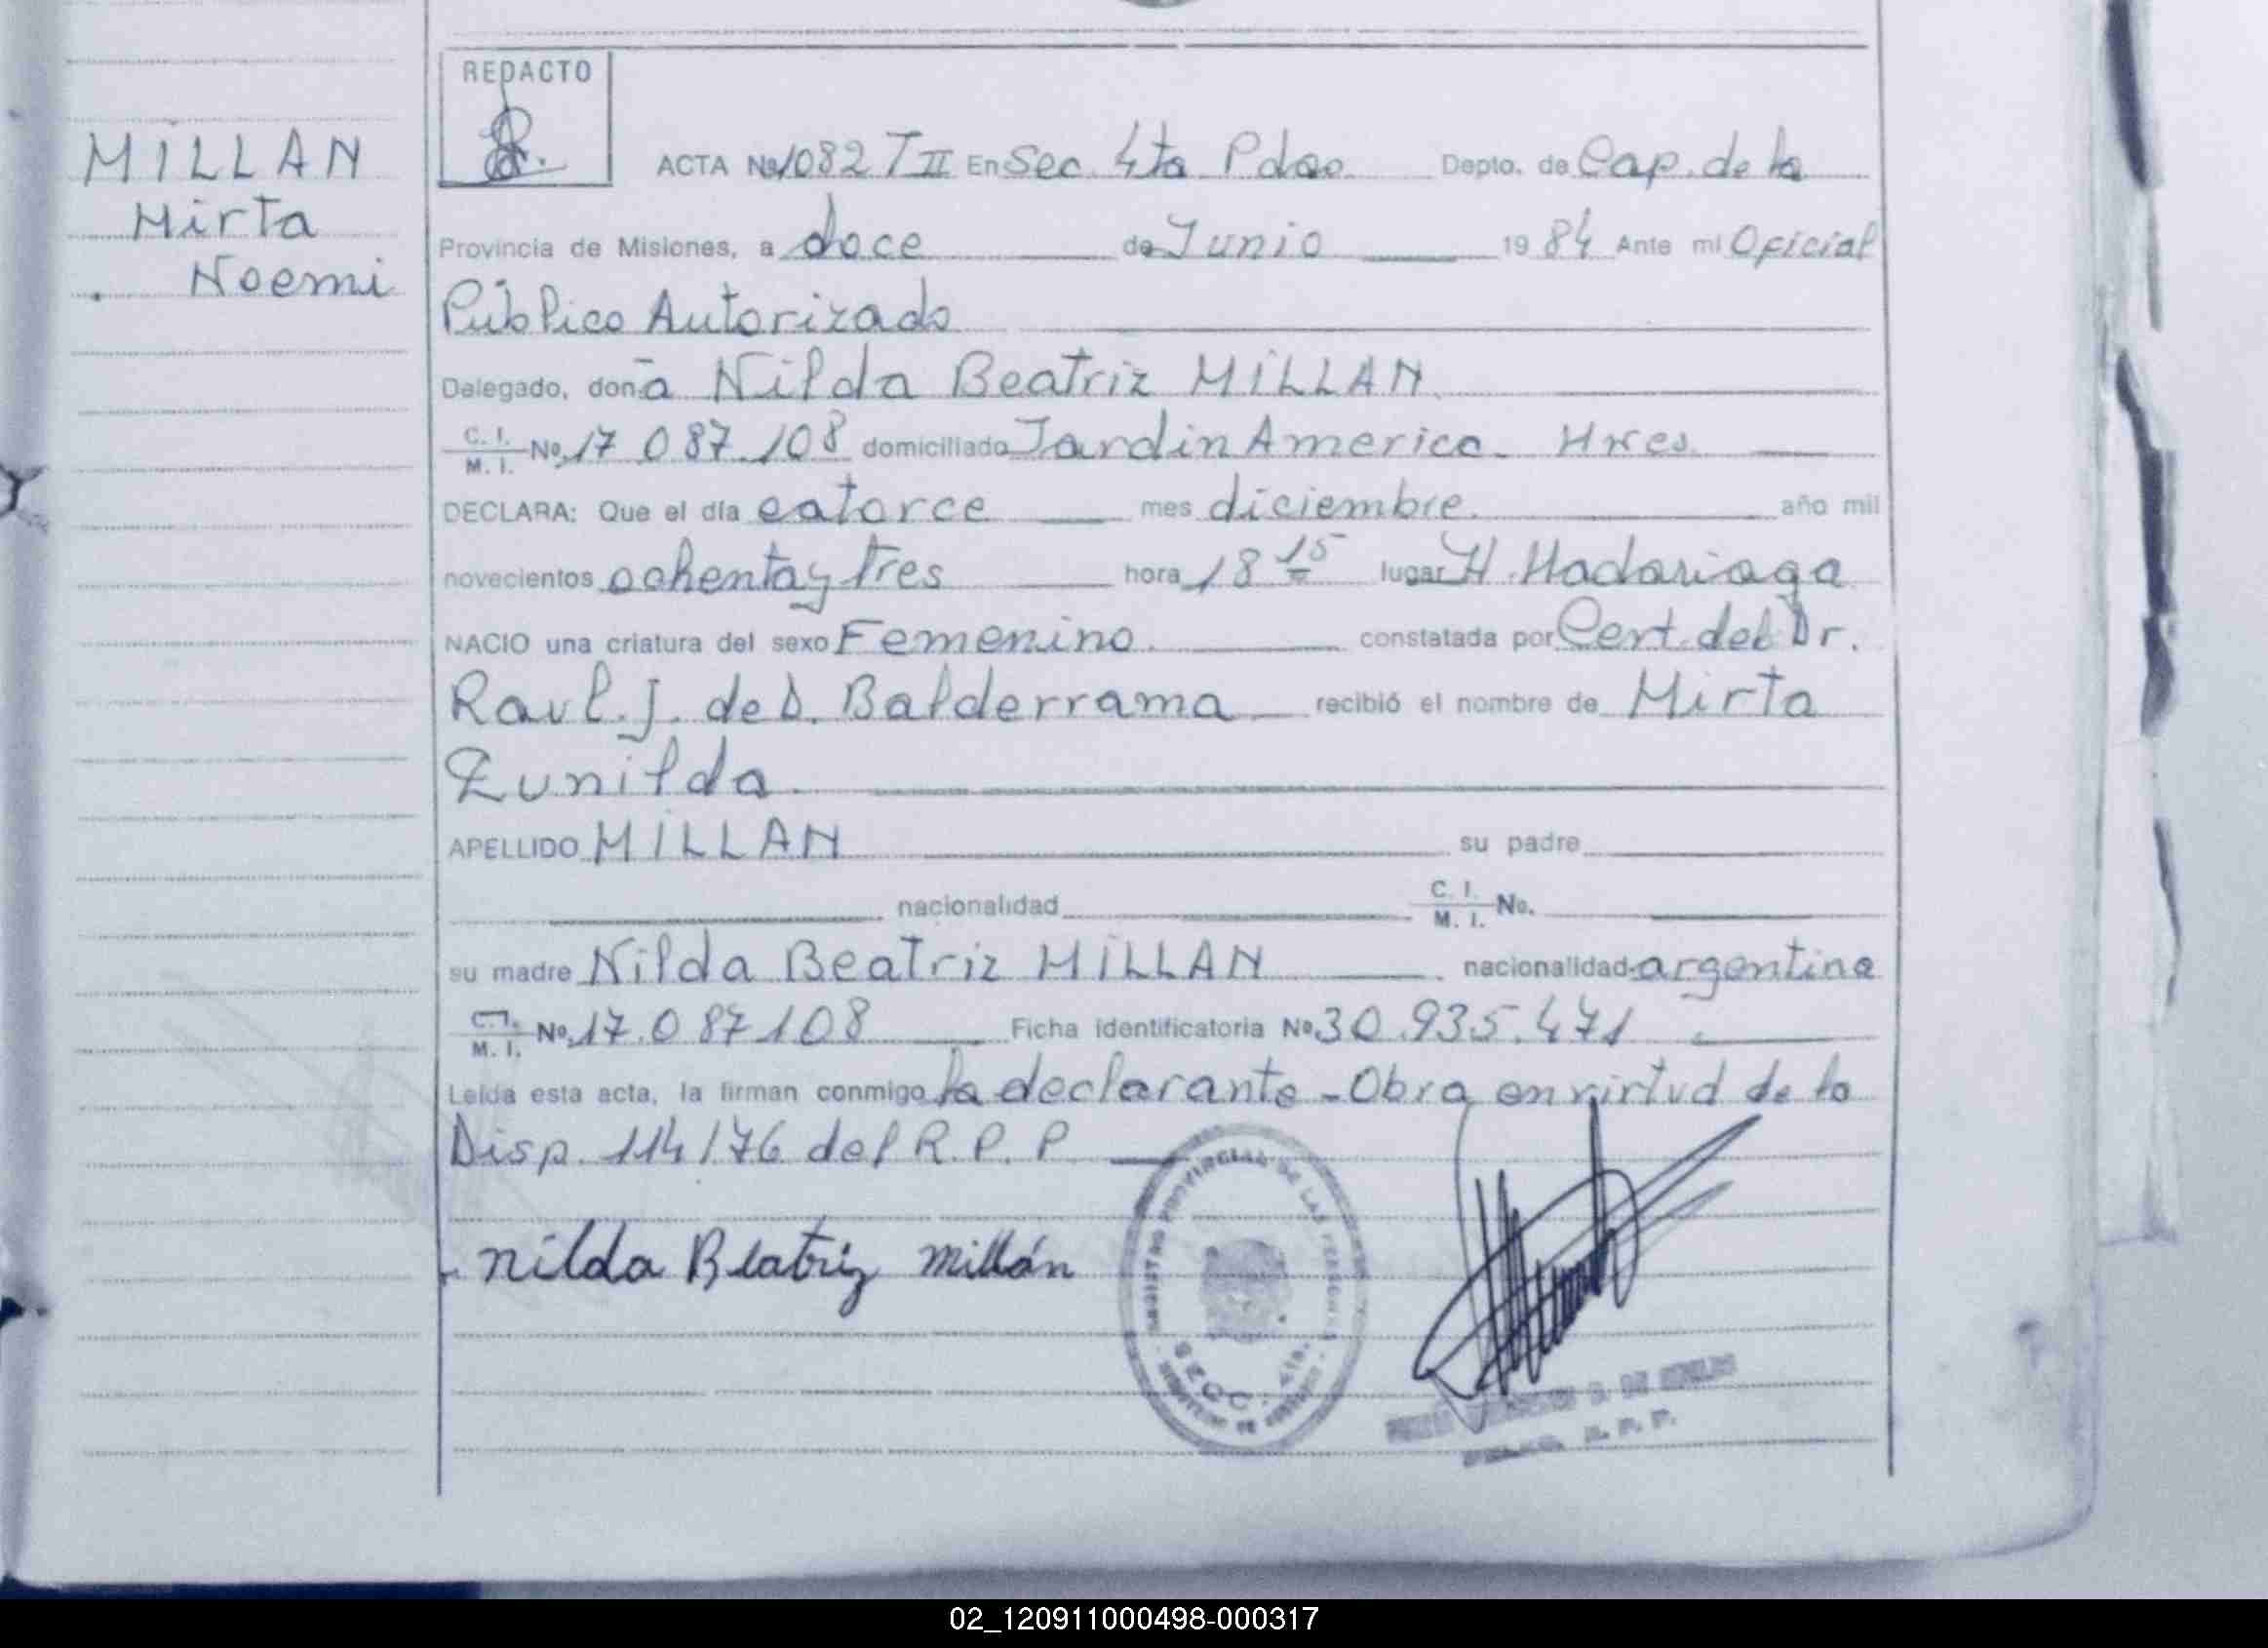 REDACTO
MILLAN
Mirta
Noemi
ACTA Nº 1082 T II En Sec. 4ta Pdas. Depto. de Cap. de la
Provincia de Misiones, a doce de Junio 1984 Ante mi Oficial
Público Autorizado
Delegado, don-a Nilda Beatriz MILLAN.
C. I. M. I. Nº 17 087.108 domiciliado Jardin America.
DECLARA: Que el día catorce mes diciembre. año mil
novecientos ochenta y tres hora 18 15 lugar H. Madariaga
NACIO una criatura del sexo Femenino. constatada por Cert. del Dr.
Raul. J. de D. Balderrama recibió el nombre de Mirta
Zunilda
APELLIDO MILLAN su padre
nacionalidad C. I. M. I. No.
su madre Nilda Beatriz MILLAN. nacionalidad argentina
C. I. M. I. Nº 17.087108 Ficha identificatoria Nº 30.935.471
Leída esta acta, la firman conmigo la declarante - Obra en virtud de la
Disp. 114/76 del R. P. P
Nilda Beatriz Millán
PROVINCIAL DE LAS PERSONAS
R. P. P.
02_120911000498-000317